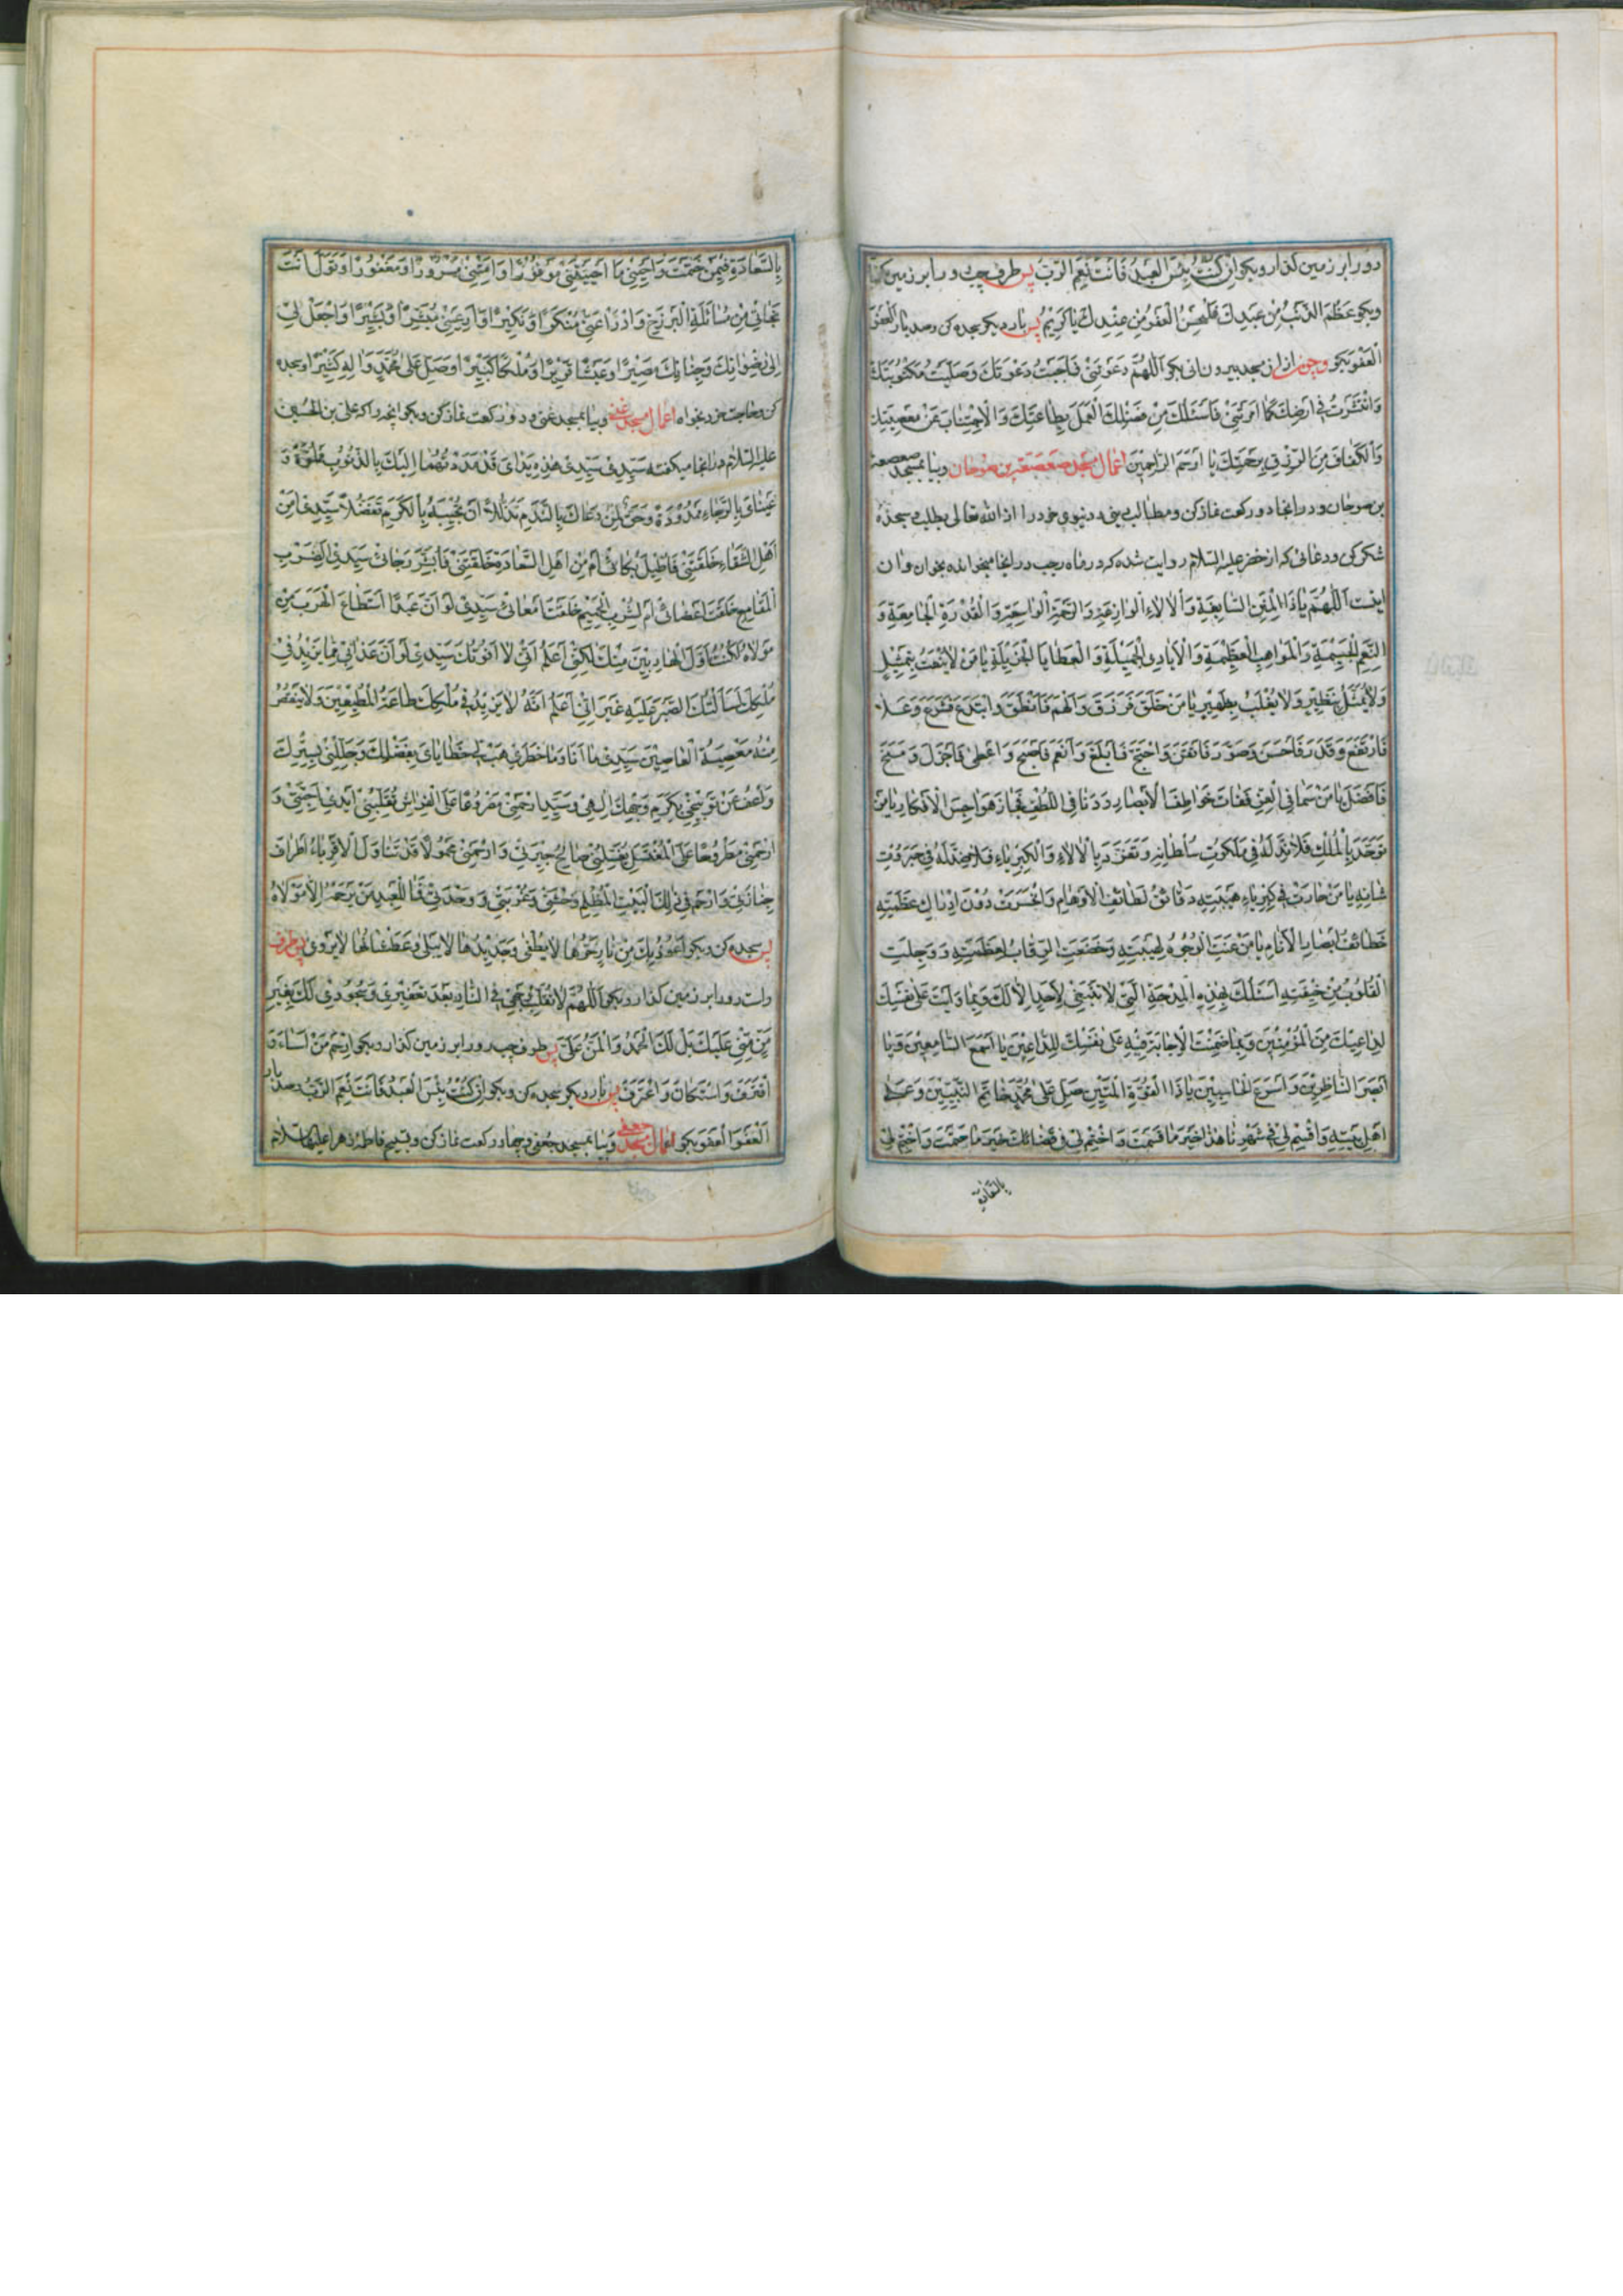 دو را بر زمین گذار و بگو ان كُنْتُ بِئْسَ الْعَبْدُ فَاَنْتَ نِعْمَ الرَّبُّ پس طرف چپ رو را بر زمین گذار
و بگو عَظُمَ الذَّنْبُ مِنْ عَبْدِكَ فَلْيَحْسُنِ الْعَفْوُ مِنْ عِنْدِكَ يَا كَرِيمُ پس بار دیگر بسجده کن و صد بار اَلْعَفْوَ
اَلْعَفْوَ بگو و چون از ان مسجد بیرون ائی بگو اَللّٰهُمَّ دَعَوْتَنِي فَاَجَبْتُ دَعْوَتَكَ وَصَلَّيْتُ مَكْتُوبَتَكَ
وَانْتَشَرْتُ فِي اَرْضِكَ كَمَا اَمَرْتَنِي فَاَسْئَلُكَ مِنْ فَضْلِكَ الْعَمَلَ بِطَاعَتِكَ وَالْاِجْتِنَابَ عَنْ مَعْصِيَتِكَ
وَالْكَفَافَ مِنَ الرِّزْقِ بِرَحْمَتِكَ يَا اَرْحَمَ الرَّاحِمِينَ اعمال مسجد صعصعة بن صوحان و بیا بمسجد صعصعة
بن صوحان و در انجا دو رکعت نماز کن و مطالب دینی و دنیوی خود را از الله تعالی بطلب و سجدهٔ
شکر کن و دعائی که از خضر علیه السلام روایت شده که در ماه رجب در انجا میخوانده بخوان و ان
اینست اَللّٰهُمَّ يَا ذَا الْمِنَنِ السَّابِغَةِ وَالْاٰلَاءِ الْوَازِعَةِ وَالرَّحْمَةِ الْوَاسِعَةِ وَالْقُدْرَةِ الْجَامِعَةِ وَ
النِّعَمِ الْجَسِيمَةِ وَالْمَوَاهِبِ الْعَظِيمَةِ وَالْاَيَادِي الْجَمِيلَةِ وَالْعَطَايَا الْجَزِيلَةِ يَا مَنْ لَا يُنْعَتُ بِتَمْثِيلٍ
وَلَا يُمَثَّلُ بِنَظِيرٍ وَلَا يُغْلَبُ بِظَهِيرٍ يَا مَنْ خَلَقَ فَرَزَقَ وَاَلْهَمَ فَاَنْطَقَ وَابْتَدَعَ فَشَرَعَ وَعَلَا
فَارْتَفَعَ وَقَدَّرَ فَاَحْسَنَ وَصَوَّرَ فَاَتْقَنَ وَاحْتَجَّ فَاَبْلَغَ وَاَنْعَمَ فَاَسْبَغَ وَاَعْطٰى فَاَجْزَلَ وَمَنَحَ
فَاَفْضَلَ يَا مَنْ سَمَا فِي الْعِزِّ فَفَاتَ خَوَاطِفَ الْاَبْصَارِ وَدَنَا فِي اللُّطْفِ فَجَازَ هَوَاجِسَ الْاَفْكَارِ يَا مَنْ
تَوَحَّدَ بِالْمُلْكِ فَلَا نِدَّ لَهُ فِي مَلَكُوتِ سُلْطَانِهِ وَتَفَرَّدَ بِالْاٰلَاءِ وَالْكِبْرِيَاءِ فَلَا ضِدَّ لَهُ فِي جَبَرُوتِ
شَانِهِ يَا مَنْ حَارَتْ فِي كِبْرِيَاءِ هَيْبَتِهِ دَقَائِقُ لَطَائِفِ الْاَوْهَامِ وَانْحَسَرَتْ دُوْنَ اِدْرَاكِ عَظَمَتِهِ
خَطَائِفُ اَبْصَارِ الْاَنَامِ يَا مَنْ عَنَتِ الْوُجُوهُ لِهَيْبَتِهِ وَخَضَعَتِ الرِّقَابُ لِعَظَمَتِهِ وَوَجِلَتِ
الْقُلُوبُ مِنْ خِيفَتِهِ اَسْئَلُكَ بِهٰذِهِ الْمِدْحَةِ الَّتِي لَا تَنْبَغِي لِاَحَدٍ اِلَّا لَكَ وَبِمَا وَاَيْتَ عَلٰى نَفْسِكَ
لِدَاعِيكَ مِنَ الْمُؤْمِنِينَ وَبِمَا ضَمِنْتَ الْاِجَابَةَ فِيهِ عَلٰى نَفْسِكَ لِلدَّاعِينَ يَا اَسْمَعَ السَّامِعِينَ وَيَا
اَبْصَرَ النَّاظِرِينَ وَاَسْرَعَ الْحَاسِبِينَ يَا ذَا الْقُوَّةِ الْمَتِينَ صَلِّ عَلٰى مُحَمَّدٍ خَاتَمِ النَّبِيِّينَ وَعَلٰى
اَهْلِ بَيْتِهِ وَاقْسِمْ لِي فِي شَهْرِنَا هٰذَا خَيْرَ مَا قَسَمْتَ وَاحْتِمْ لِي فِي قَضَائِكَ خَيْرَ مَا حَتَمْتَ وَاخْتِمْ لِي
بالسعادة
بِالسَّعَادَةِ فِيمَنْ خَتَمْتَ وَاَحْيِنِي مَا اَحْيَيْتَنِي مَوْفُورًا وَاَمِتْنِي مَسْرُورًا وَمَغْفُورًا وَتَوَلَّ اَنْتَ
نَجَاتِي مِنْ مُسَائَلَةِ الْبَرْزَخِ وَادْرَاْ عَنِّي مُنْكَرًا وَنَكِيرًا وَاَرِ عَيْنِي مُبَشِّرًا وَبَشِيرًا وَاجْعَلْ لِي
اِلٰى رِضْوَانِكَ وَجِنَانِكَ مَصِيرًا وَعَيْشًا قَرِيرًا وَمُلْكًا كَبِيرًا وَصَلِّ عَلٰى مُحَمَّدٍ وَاٰلِهِ كَثِيرًا و سجده
کن و حاجت خود بخواه اعمال مسجد غنی و بیا بمسجد غنی و دو رکعت نماز کن و بگو انچه را که علی بن الحسین
علیه السلام در انجا میگفته سَيِّدِي سَيِّدِي هٰذِهِ يَدَايَ قَدْ مَدَدْتُهُمَا اِلَيْكَ بِالذُّنُوبِ مَمْلُوَّةً وَ
عَيْنَايَ بِالرَّجَاءِ مَمْدُودَةً وَحَقٌّ لِمَنْ دَعَاكَ بِالنَّدَمِ تَذَلُّلًا اَنْ تُجِيبَهُ بِالْكَرَمِ تَفَضُّلًا سَيِّدِي اَمِنْ
اَهْلِ الشَّقَاءِ خَلَقْتَنِي فَاُطِيلَ بُكَائِي اَمْ مِنْ اَهْلِ السَّعَادَةِ خَلَقْتَنِي فَاُبَشِّرَ رَجَائِي سَيِّدِي اَلِضَرْبِ
الْمَقَامِعِ خَلَقْتَ اَعْضَائِي اَمْ لِشُرْبِ الْحَمِيمِ خَلَقْتَ اَمْعَائِي سَيِّدِي لَوْ اَنَّ عَبْدًا اسْتَطَاعَ الْهَرَبَ مِنْ
مَوْلَاهُ لَكُنْتُ اَوَّلَ الْهَارِبِينَ مِنْكَ لٰكِنِّي اَعْلَمُ اَنِّي لَا اَفُوتُكَ سَيِّدِي لَوْ اَنَّ عَذَابِي مِمَّا يَزِيدُ فِي
مُلْكِكَ لَسَاَلْتُكَ الصَّبْرَ عَلَيْهِ غَيْرَ اَنِّي اَعْلَمُ اَنَّهُ لَا يَزِيدُ فِي مُلْكِكَ طَاعَةُ الْمُطِيعِينَ وَلَا يَنْقُصُ
مِنْهُ مَعْصِيَةُ الْعَاصِينَ سَيِّدِي مَا اَنَا وَمَا خَطَرِي هَبْ لِي خَطَايَايَ بِفَضْلِكَ وَجَلِّلْنِي بِسِتْرِكَ
وَاعْفُ عَنْ تَوْبِيخِي بِكَرَمِ وَجْهِكَ اِلٰهِي وَسَيِّدِي ارْحَمْنِي مَصْرُوعًا عَلَى الْفِرَاشِ تُقَلِّبُنِي اَيْدِي اَحِبَّتِي وَ
ارْحَمْنِي مَطْرُوحًا عَلَى الْمُغْتَسَلِ يُغَسِّلُنِي صَالِحُ جِيرَتِي وَارْحَمْنِي مَحْمُولًا قَدْ تَنَاوَلَ الْاَقْرِبَاءُ اَطْرَافَ
جِنَازَتِي وَارْحَمْ فِي ذٰلِكَ الْبَيْتِ الْمُظْلِمِ وَحْشَتِي وَغُرْبَتِي وَوَحْدَتِي فَمَا لِلْعَبْدِ مَنْ يَرْحَمُهُ اِلَّا مَوْلَاهُ
پس سجده کن و بگو اَعُوذُ بِكَ مِنْ نَارٍ حَرُّهَا لَا يُطْفٰى وَجَدِيدُهَا لَا يَبْلٰى وَعَطْشَانُهَا لَا يَرْوٰى پس طرف
راست رو را بر زمین گذار و بگو اَللّٰهُمَّ لَا تُقَلِّبْ وَجْهِي فِي النَّارِ بَعْدَ تَعْفِيرِي وَسُجُودِي لَكَ بِغَيْرِ
مَنٍّ مِنِّي عَلَيْكَ بَلْ لَكَ الْحَمْدُ وَالْمَنُّ عَلَيَّ پس طرف چپ رو را بر زمین گذار و بگو اِرْحَمْ مَنْ اَسَاءَ وَ
اقْتَرَفَ وَاسْتَكَانَ وَاعْتَرَفَ پس بار دیگر سجده کن و بگو اِنْ كُنْتُ بِئْسَ الْعَبْدُ فَاَنْتَ نِعْمَ الرَّبُّ و صد بار
اَلْعَفْوَ اَلْعَفْوَ بگو اعمال مسجد جعفی و بیا بمسجد جعفی و چهار رکعت نماز کن و تسبیح فاطمه زهرا علیها السلام